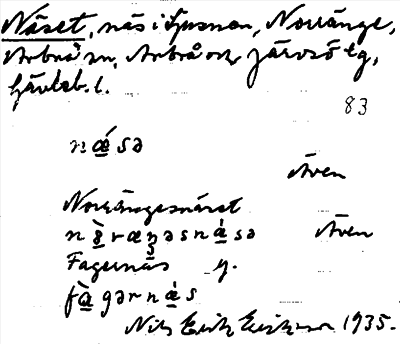 Näset, näs i Ljusnan, Norränge,
Arbrå sn, Arbrå och Järvsö tg,
Gävleb. l.
83
næ̀sə
Även
Norrängesnäset
nòræŋəsnæ̀sə Även
Fagernäs
fàgərnæ̀s
Nils Erik Eriksson 1935.